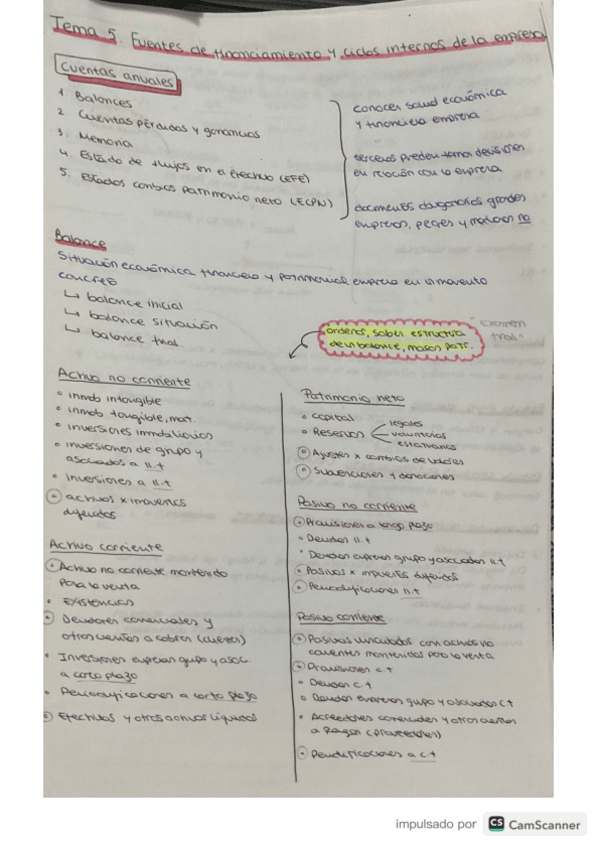 Tema 5. Fuentes de financiamiento y ciclos internos de la empresa
cuentas anuales
1 Balances
2 Cuentas pérdidas y ganancias
3. Memoria
4. Estado de flujos en el efectivo (EFE)
5. Estados cambios patrimonio neto (ECPN)
conocer salud económica
y financiera empresa
terceros pueden tomar decisiones
en relación con la empresa
documentos obligatorios grandes
empresas, peqes y medianas no
Balance
Situación económica financiera y patrimonial empresa en un momento
concreto
↳ balance inicial
↳ balance situación
↳ balance final.
ordenar, saber estructura
de un balance, masas patr.
examen
final
Activo no corriente
• inmob intangible
• inmob tangible, mat.
• inversiones inmobiliarias
• inversiones de grupo y
asociados a ll.t
• inversiones a ll.t
• activos x impuestos
diferidos
Activo corriente
• Activo no corriente mantenido
para la venta
• Existencias
• Deudores comerciales y
otras cuentas a cobrar (clientes)
• Inversiones empresas grupo y asoc.
a corto plazo
• Periodificaciones a corto plazo
• Efectivos y otros activos líquidos
Patrimonio neto
• Capital
• Reservas
legales
voluntarias
estatutarias
• Ajustes x cambios de valores
• Subvenciones y donaciones
Pasivo no corriente
• Provisiones a largo plazo
• Deudas ll.t
• Deudas empresas grupo y asociados ll.t
• Pasivos x impuestos diferidos
• Periodificaciones ll.t
Pasivo corriente
• Pasivos vinculados con activos no
corrientes mantenidos para la venta
• Provisiones c.t
• Deudas c.t
• Deudas empresas grupo y asociados c.t
• Acreedores comerciales y otras cuentas
a pagar (proveedores)
• Periodificaciones a c.t
impulsado por CS CamScanner